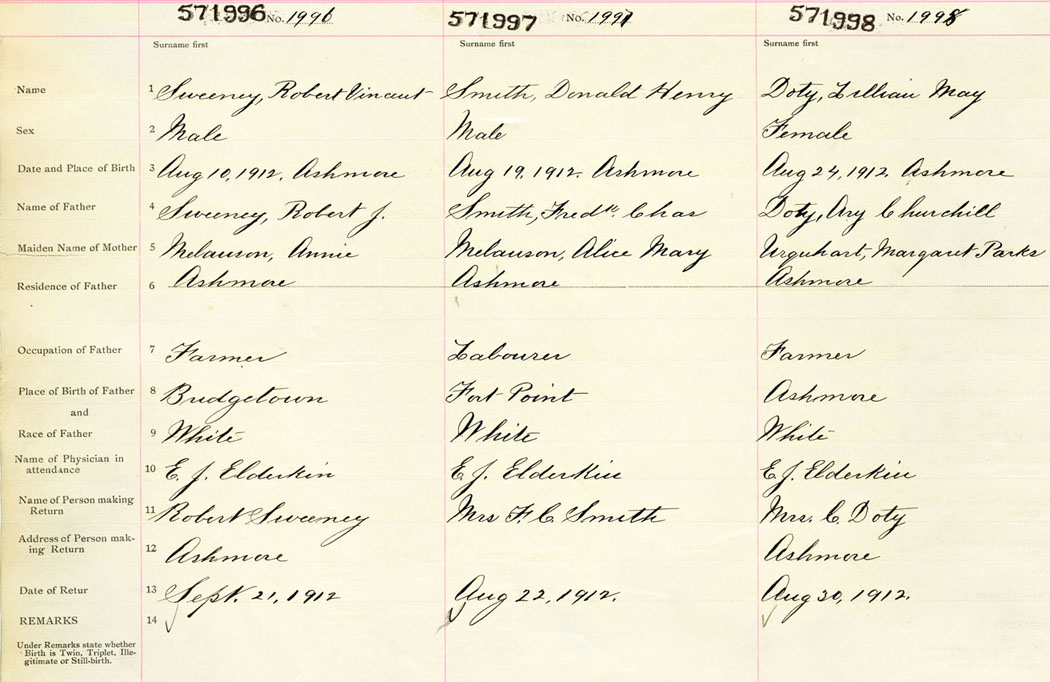 571996 No. 1996 571997 No. 1997 571998 No. 1998
Surname first Surname first Surname first
Name 1 Sweeney, Robert Vincent Smith, Donald Henry Doty, Lillian May
Sex 2 Male Male Female
Date and Place of Birth 3 Aug 10, 1912, Ashmore Aug 19, 1912. Ashmore Aug 24, 1912. Ashmore
Name of Father 4 Sweeney, Robert J. Smith, Fredk. Chas Doty, Ary Churchill
Maiden Name of Mother 5 Melanson, Annie Melanson, Alice Mary Urquhart, Margaret Parks
Residence of Father 6 Ashmore Ashmore Ashmore
Occupation of Father 7 Farmer Labourer Farmer
Place of Birth of Father 8 Bridgetown Fort Point Ashmore
and
Race of Father 9 White White White
Name of Physician in
attendance 10 E. J. Elderkin E. J. Elderkin E. J. Elderkin
Name of Person making
Return 11 Robert Sweeney Mrs F. C. Smith Mrs. C. Doty
Address of Person mak-
ing Return 12 Ashmore Ashmore
Date of Retur 13 Sept. 21, 1912 Aug 22, 1912. Aug 30, 1912.
REMARKS 14
Under Remarks state whether
Birth is Twin, Triplet, Ille-
gitimate or Still-birth.